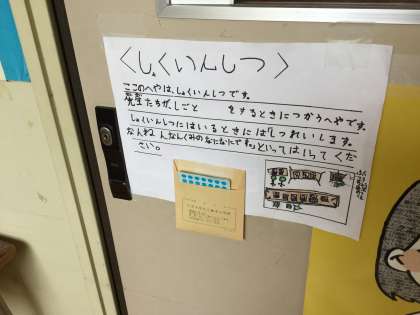 〈しょくいんしつ〉
ここのへやは、しょくいんしつです。
先生たちが、しごと をするときにつかうへやです。
しょくいんしつにはいるときには「しつれいします。
なんねんなんくみのなになにです。」といってはいってくだ
さい。